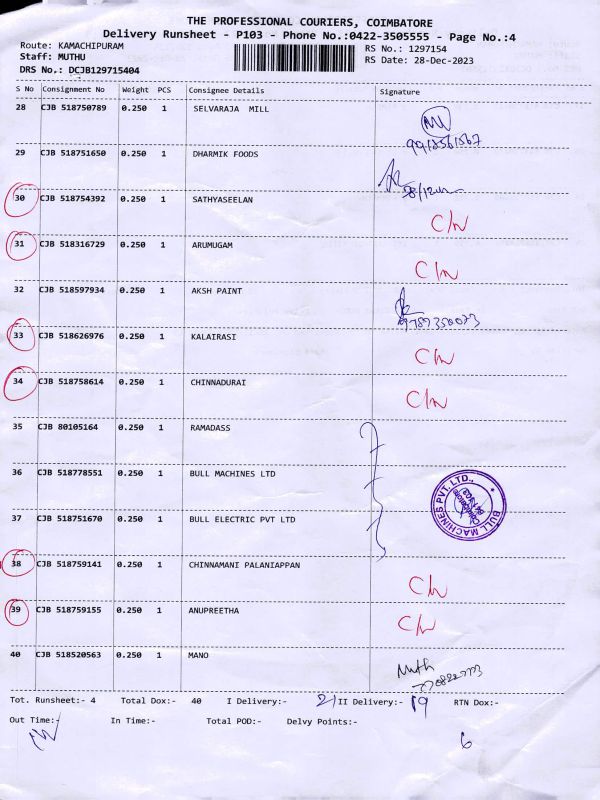 THE PROFESSIONAL COURIERS, COIMBATORE
Delivery Runsheet - P103 - Phone No.:0422-3505555 - Page No.:4
Route: KAMACHIPURAM RS No.: 1297154
Staff: MUTHU RS Date: 28-Dec-2023
DRS No.: DCJB129715404
S No Consignment No Weight PCS Consignee Details Signature
28 CJB 518750789 0.250 1 SELVARAJA MILL
29 CJB 518751650 0.250 1 DHARMIK FOODS
30 CJB 518754392 0.250 1 SATHYASEELAN C/N
31 CJB 518316729 0.250 1 ARUMUGAM C/N
32 CJB 518597934 0.250 1 AKSH PAINT
33 CJB 518626976 0.250 1 KALAIRASI C/N
34 CJB 518758614 0.250 1 CHINNADURAI C/N
35 CJB 80105164 0.250 1 RAMADASS
36 CJB 518778551 0.250 1 BULL MACHINES LTD
BULL MACHINES PVT. LTD.,
37 CJB 518751670 0.250 1 BULL ELECTRIC PVT LTD
38 CJB 518759141 0.250 1 CHINNAMANI PALANIAPPAN C/N
39 CJB 518759155 0.250 1 ANUPREETHA C/N
40 CJB 518520563 0.250 1 MANO
Tot. Runsheet:- 4 Total Dox:- 40 I Delivery:- 21 II Delivery:- 19 RTN Dox:-
Out Time:- In Time:- Total POD:- Delvy Points:-
6